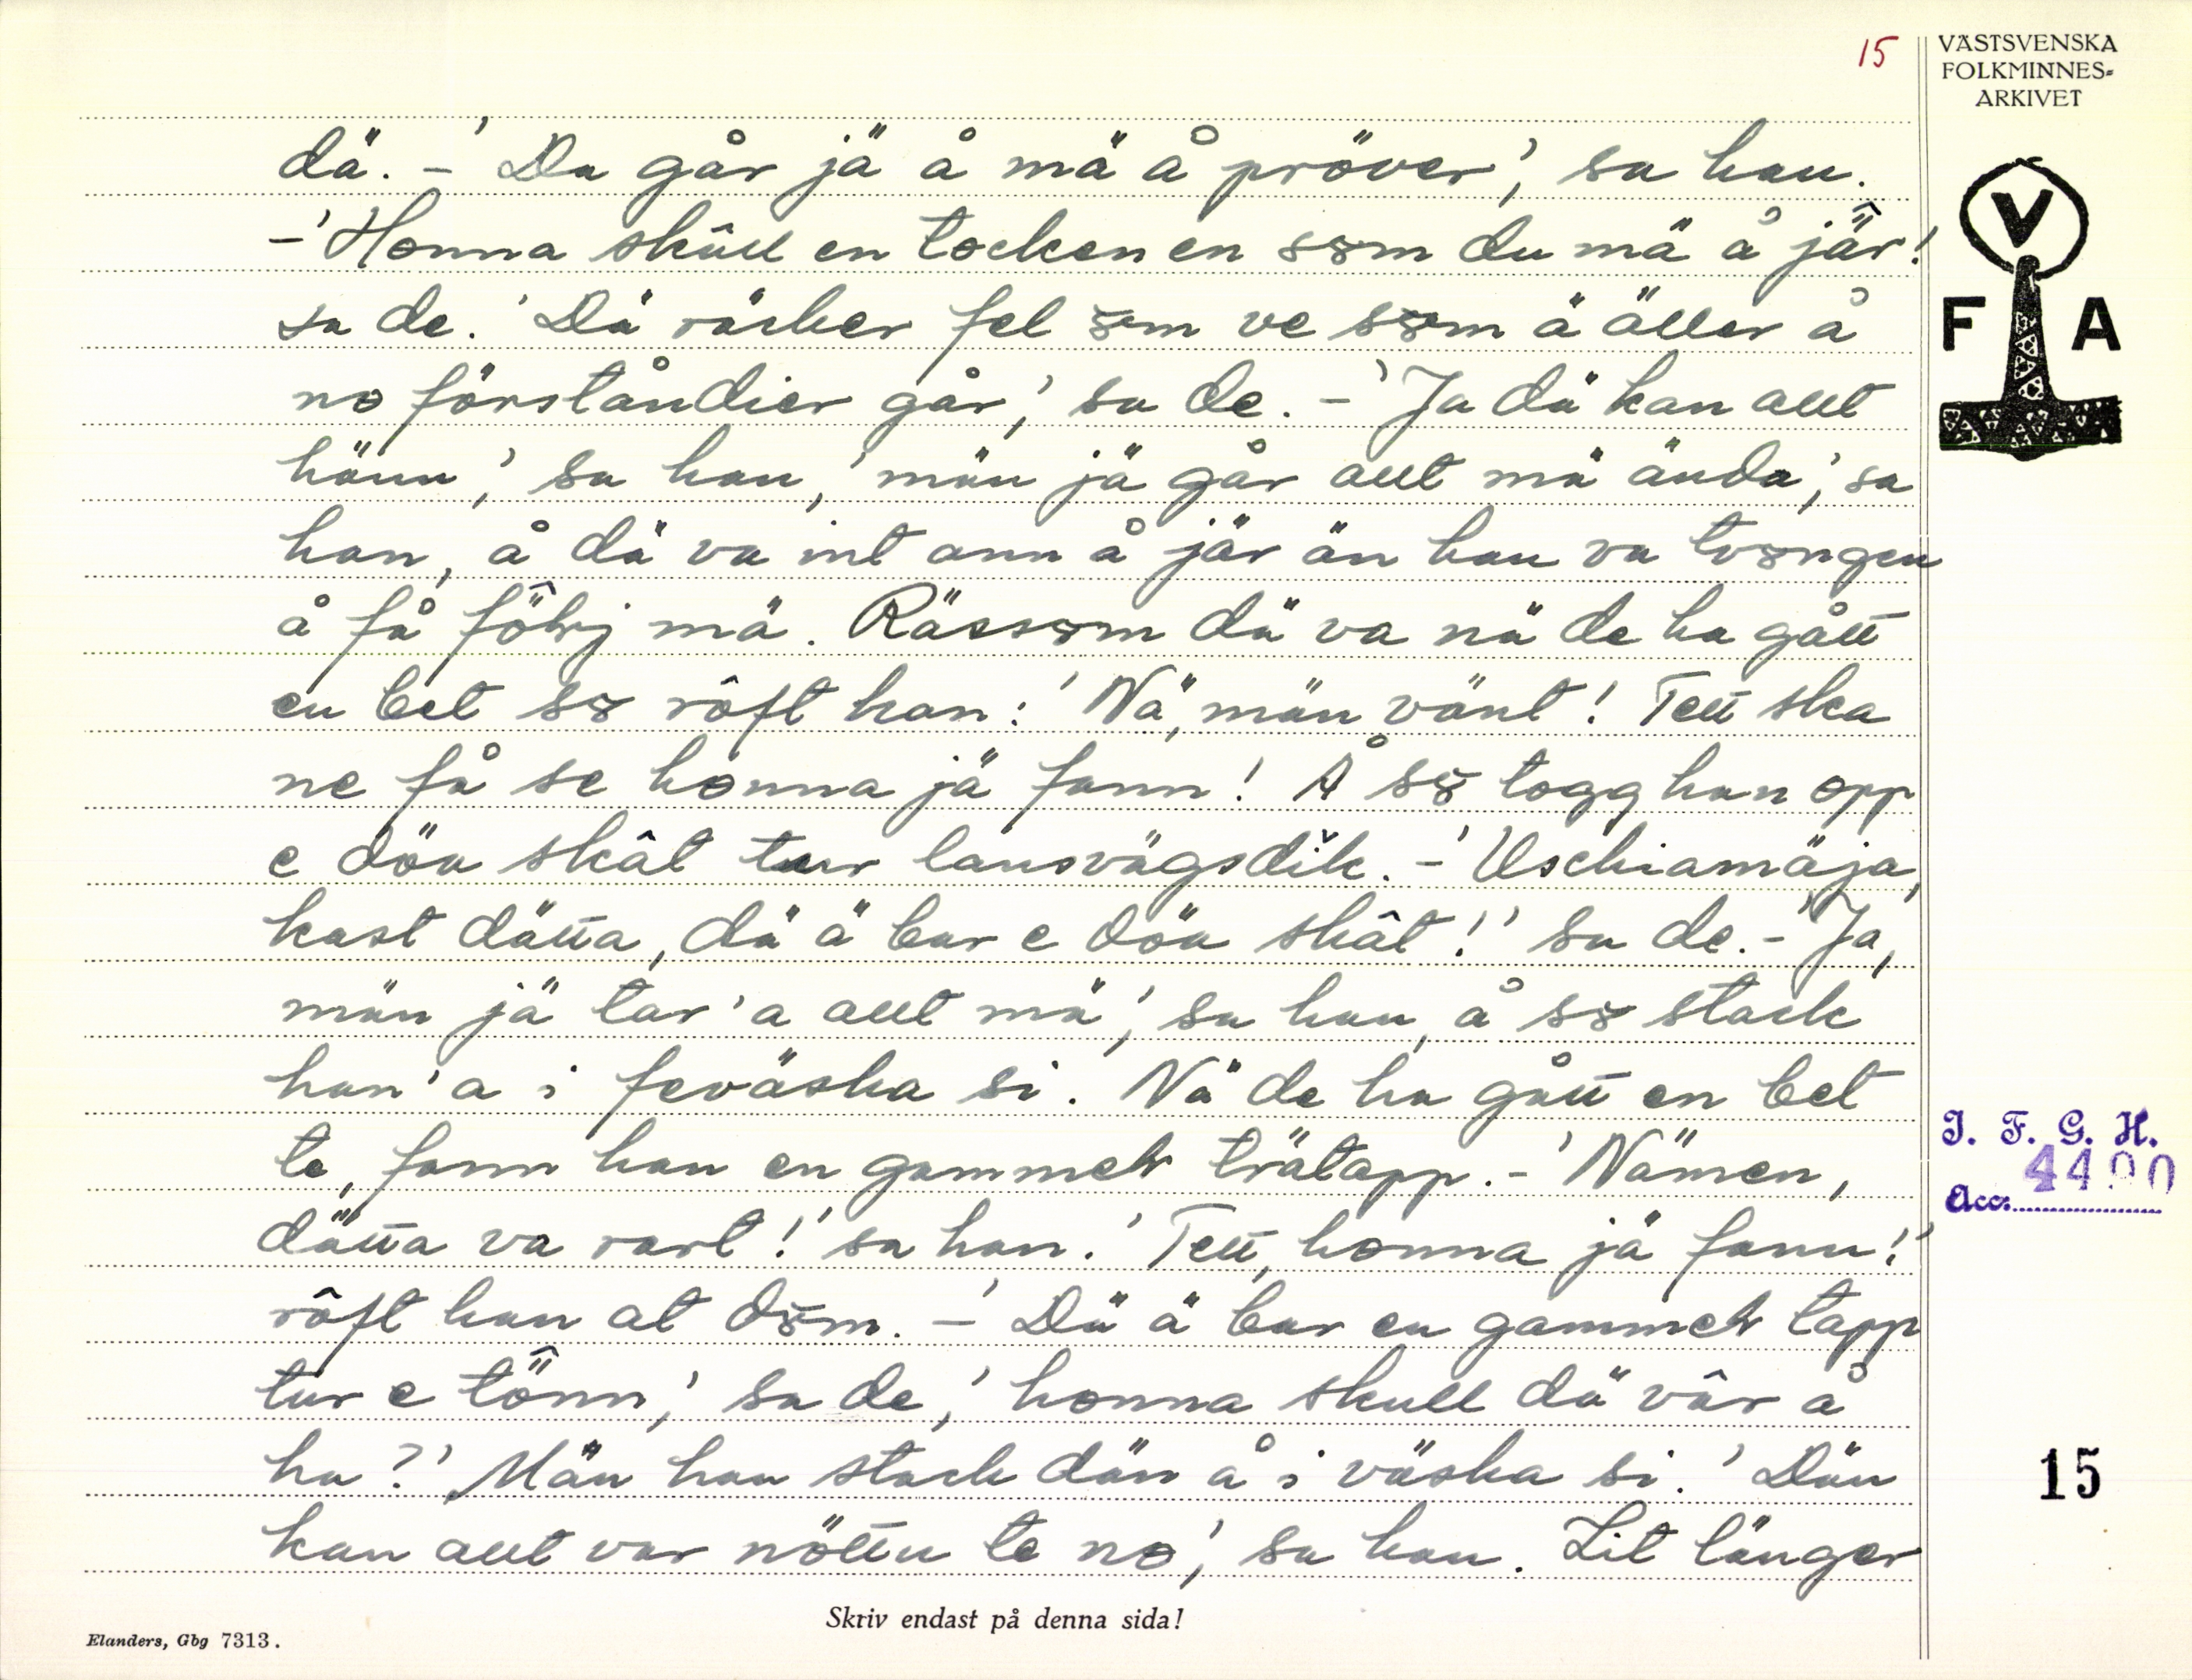 15
VÄSTSVENSKA
FOLKMINNES=
ARKIVET
V
F A
dä. – 'Da går jä å mä å pröver', sa han.
– 'Honna skûll en tocken en sȣm du mä å jä̂r!
sa de. 'Dä räcker fel ȣm ve sȣm ä äller å
no förståndier går,' sa de. – 'Ja dä kan allt
hänn', sa han, 'män jä går allt mä ända', sa
han, å dä va int ann å jär än han va tvȣngen
å få fö̂hrj mä. Rässȣm dä va nä de ha gått
en bet sȣ rôft han: 'Nä, män vänt! Tett ska
ne få se honna jä fann! Å sȣ togg han opp
e döa skât tur lansvägsdǐk. – 'Uschiamäja,
kast dätta, dä ä bar e döa skât!' sa de. – 'Ja,
män jä tar 'a allt mä', sa han, å sȣ stack
han 'a i feväska si. Nä de ha gått en bet
te, fann han en gammeh trätapp. – 'Nämen,
dätta va rart!' sa han. 'Tett, honna jä fann!'
rôft han at dȣm. – 'Dä ä bar en gammeh tapp
tur e tö̂nn', sa de, 'honna skull dä vâr å
ha?' Män han stack dän å i väska si. 'Dän
kan allt var nöttu te no', sa han. Lit länger
I. F. G. H.
4490
Acc.
15
Skriv endast på denna sida!
Elanders, Gbg 7313.